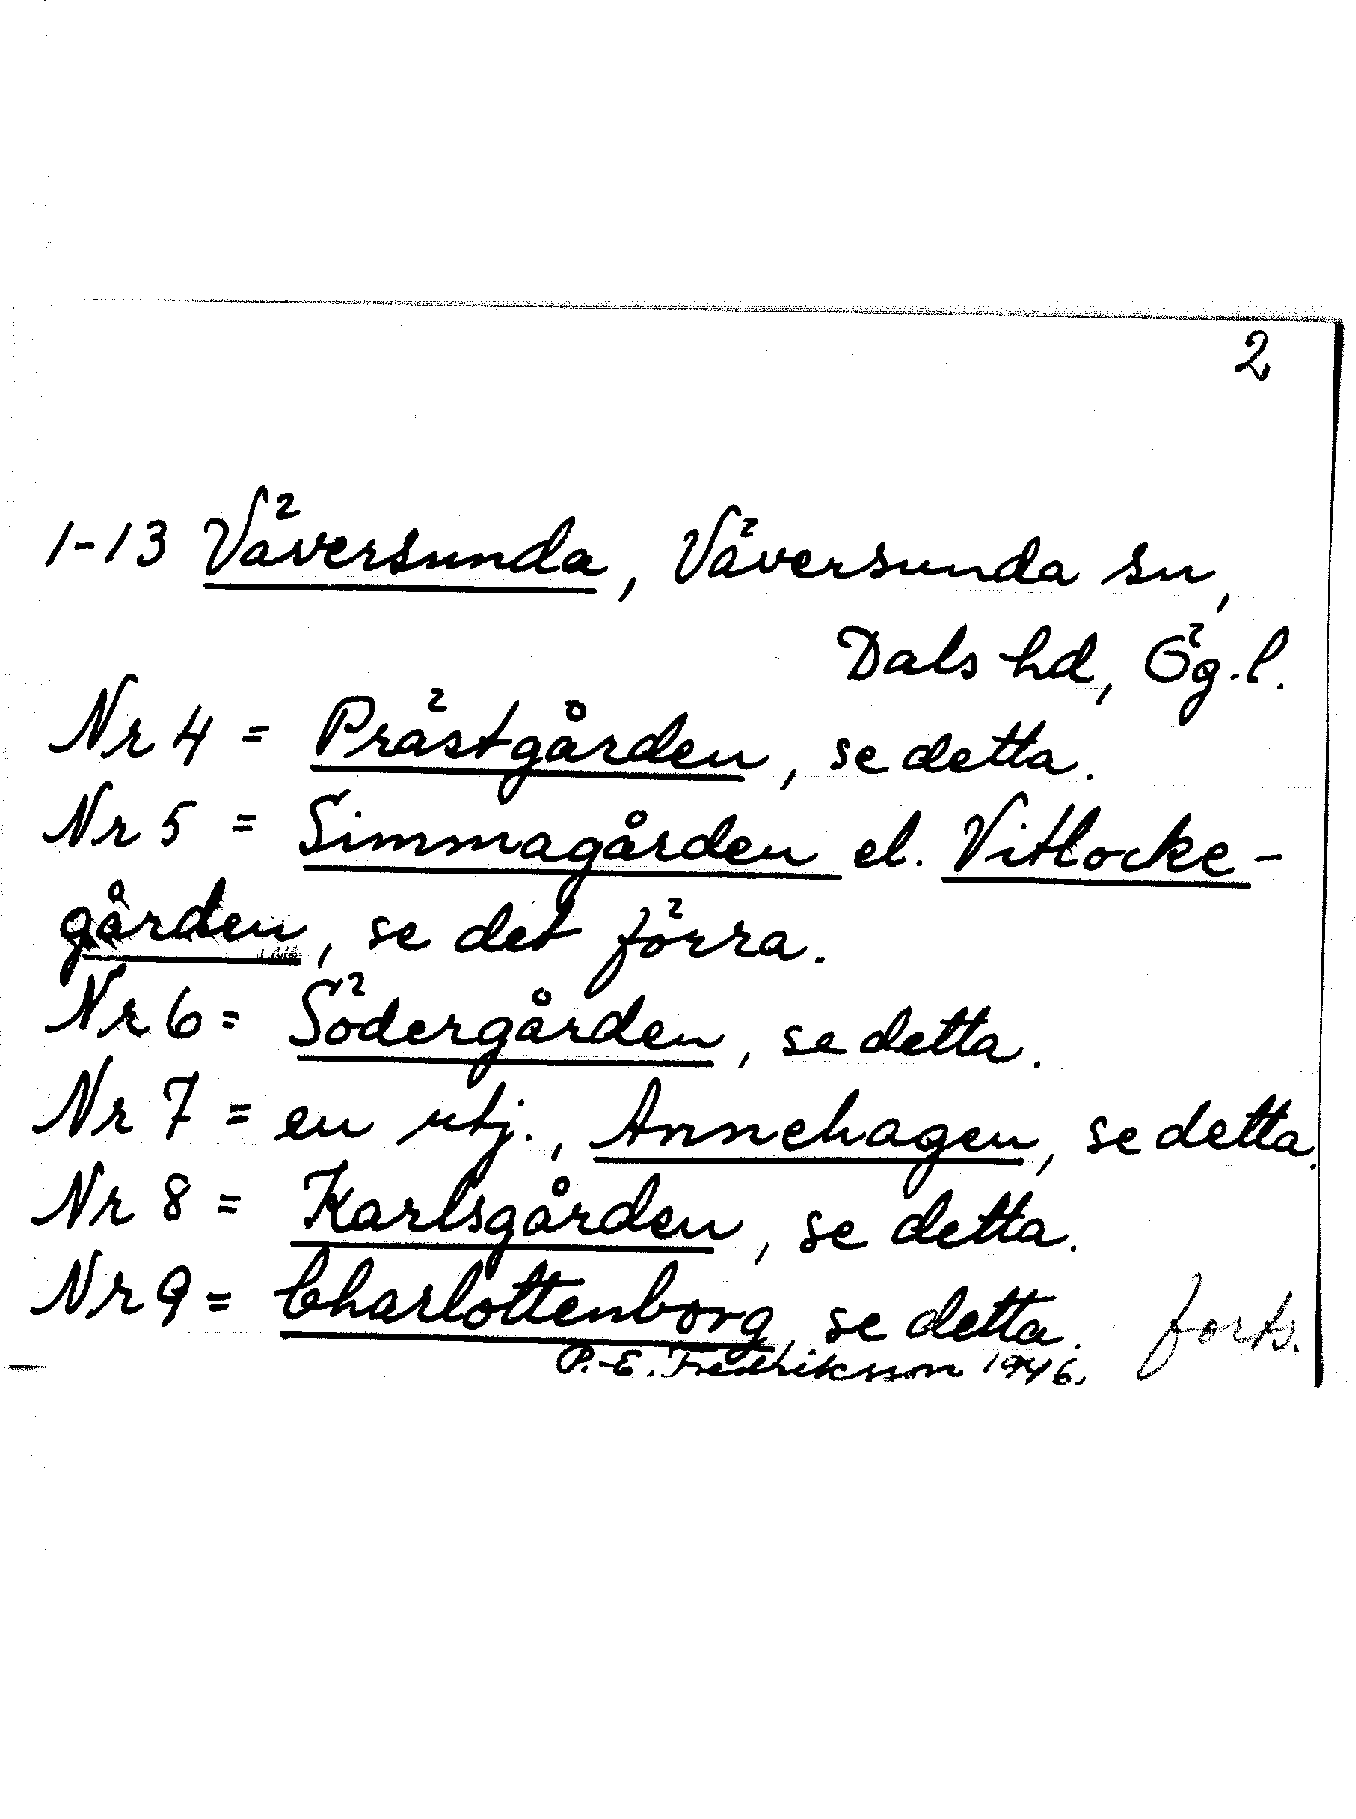 2
1-13 Väversunda, Väversunda sn,
Dals hd, Ög.l.
Nr 4 = Prästgården, se detta.
Nr 5 = Simmagården el. Vitlocke-
gården, se det förra.
Nr 6 = Södergården, se detta.
Nr 7 = en utj., Annehagen, se detta.
Nr 8 = Karlsgården, se detta.
Nr 9 = Charlottenborg, se detta. forts.
P.-E. Fredriksson 1946.